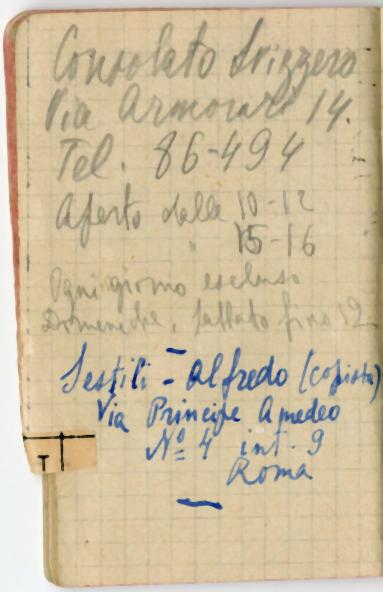 Consolato Svizzero
Via Armorari 14.
Tel. 86-494
Aperto dalle 10-12
" 15-16
Ogni giorno escluso
Domeniche, Sabbato fino 12
Sestili - Alfredo (copista)
Via Principe Amedeo
Nº 4 int. 9
Roma
T